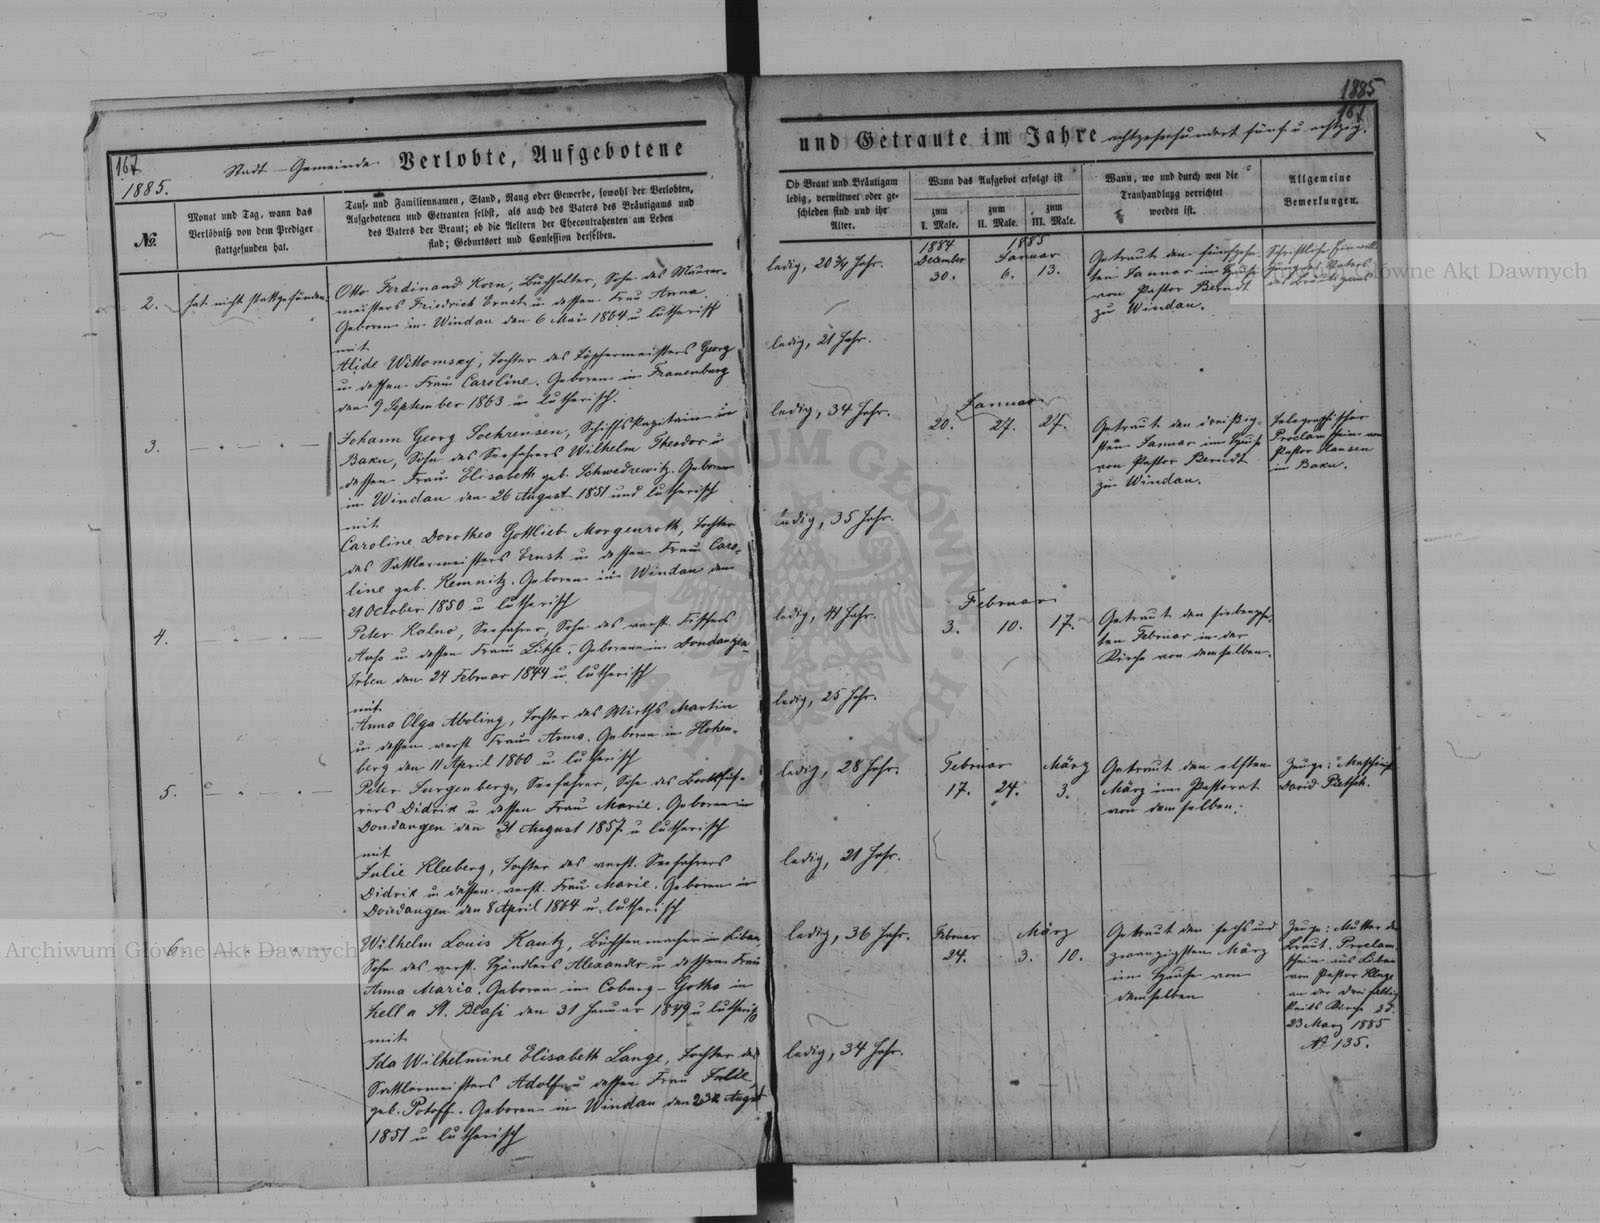 167
1885.
Stadt-Gemeinde Verlobte, Aufgebotene
№
Monat und Tag, wann das
Verlöbniß vor dem Prediger
stattgefunden hat.
Tauf- und Familiennamen, Stand, Rang oder Gewerbe, sowohl der Verlobten,
Aufgebotenen und Getrauten selbst, als auch des Vaters des Bräutigams und
des Vaters der Braut; ob die Aeltern der Ehecontrahenten am Leben
sind; Geburtsort und Confession derselben.
2.
hat nicht stattgefunden
Otto Ferdinand Korn, Buchhalter, Sohn des Maurer-
meisters Friedrich Ernst u dessen Frau Anna.
Geboren in Windau den 6 Mai 1864 u lutherisch
mit
Alide Wittomsky, Tochter des Töpfermeisters Georg
u dessen Frau Caroline. Geboren in Frauenburg
den 9 September 1863 u lutherisch.
3.
Johann Georg Soehrensen, Schiffskapitain in
Baku, Sohn des Seefahrers Wilhelm Theodor u
dessen Frau Elisabeth geb. Schwedrewitz. Geboren
in Windau den 26 August 1851 und lutherisch
mit
Caroline Dorothea Gottlieb Morgenroth, Tochter
des Sattlermeisters Ernst u dessen Frau Caro-
line geb. Kemnitz. Geboren in Windau den
21 October 1850 u lutherisch
4.
Peter Kalno, Seefahrer, Sohn des verst. Fischers
Anss u dessen Frau Lihse. Geboren in Dondangen-
Irben den 24 Februar 1844 u lutherisch
mit
Anna Olga Aboling, Tochter des Wirths Martin
u dessen verst Frau Anna. Geboren in Hohen-
berg den 11 April 1860 u lutherisch
5.
Peter Jurgenberg, Seefahrer, Sohn des
Didrik u dessen Frau Marie. Geboren in
Dondangen den 31 August 1857 u lutherisch
mit
Julie Kleeberg, Tochter des verst. Seefahrers
Didrik u dessen verst. Frau Marie. Geboren in
Dondangen den 8 April 1864 u lutherisch
6.
Wilhelm Louis Kautz, Büchsenmacher in Libau,
Sohn des verst. Händlers Alexander u dessen Frau
Anna Maria. Geboren in Coburg-Gotha in
Zell a St. Blasi den 31 Januar 1849 u lutherisch
mit
Ida Wilhelmine Elisabeth Lange, Tochter des
Sattlermeisters Adolf u dessen Frau
geb. Potoff. Geboren in Windau den August
1851 u lutherisch
1885
167
und Getraute im Jahre achtzehnhundert fünf u achtzig.
Ob Braut und Bräutigam
ledig, verwittwet oder ge-
schieden sind und ihr
Alter.
Wann das Aufgebot erfolgt ist
zum
I. Male.
zum
II. Male.
zum
III. Male.
Wann, wo und durch wen die
Trauhandlung verrichtet
worden ist.
Allgemeine
Bemerkungen.
ledig, 20 3/4 Jahr.
1884
December
30.
1885
Januar
6. 13.
Getraut den fünfzehn-
ten Januar im Hause
von Pastor Berndt
zu Windau.
Schriftliche Einwilli-
des Vaters
des Bräutigams
ledig, 21 Jahr.
ledig, 34 Jahr.
Januar
20. 27. 27.
Getraut den dreißig-
sten Januar im Hause
von Pastor Berndt
zu Windau.
Telegraphischer
Proclamschein von
Pastor Hansen
in Baku.
ledig, 35 Jahr.
ledig, 41 Jahr.
Februar
3. 10. 17.
Getraut den siebenzehn-
ten Februar in der
Kirche von demselben.
ledig, 25 Jahr.
ledig, 28 Jahr.
Februar März
17. 24. 3.
Getraut den elften
März im Pastorat
von demselben.
Zeuge: Matthias
David Pletsch.
ledig, 21 Jahr.
ledig, 36 Jahr.
Februar März
24. 3. 10.
Getraut den sechs und
zwanzigsten März
im Hause von
demselben
Zeuge: Mutter der
Braut. Proclam-
schein aus Libau
von Pastor Kluge
an der Dreifaltig-
keits Kirche d. d.
23 März 1885
№ 135.
ledig, 34 Jahr.
Archiwum Główne Akt Dawnych
Archiwum Główne Akt Dawnych
ARCHIWUM GŁÓWNE AKT DAWNYCH